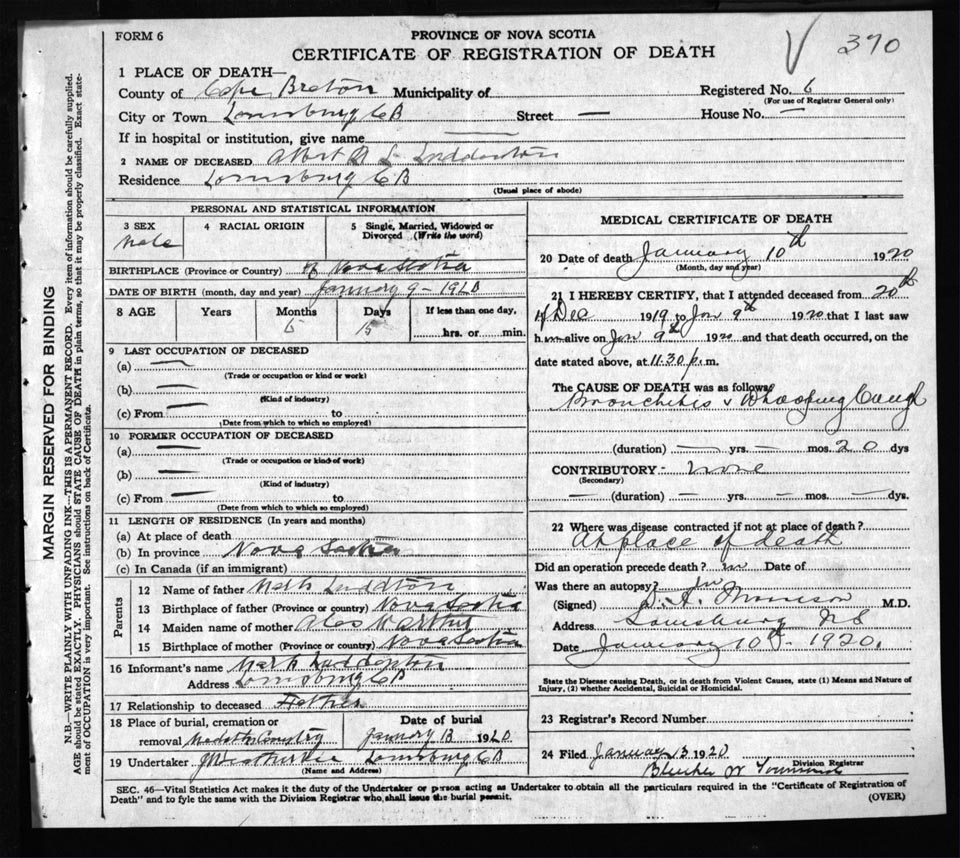 FORM 6
PROVINCE OF NOVA SCOTIA
CERTIFICATE OF REGISTRATION OF DEATH
√ 390
1 PLACE OF DEATH—
County of Cape Breton Municipality of Registered No. 6
(For use of Registrar General only)
City or Town Louisburg CB Street — House No. —
If in hospital or institution, give name —
2 NAME OF DECEASED Albert A L Luddenton
Residence Louisburg CB
(Usual place of abode)
PERSONAL AND STATISTICAL INFORMATION
3 SEX Male
4 RACIAL ORIGIN
5 Single, Married, Widowed or Divorced (Write the word)
BIRTHPLACE (Province or Country) Nova Scotia
DATE OF BIRTH (month, day and year) January 9 - 1920
8 AGE Years Months Days If less than one day,
6 15 hrs. or min.
9 LAST OCCUPATION OF DECEASED
(a) —
(Trade or occupation or kind or work)
(b) —
(Kind of industry)
(c) From — to
(Date from which to which so employed)
10 FORMER OCCUPATION OF DECEASED
(a) —
(Trade or occupation or kind of work)
(b) —
(Kind of industry)
(c) From — to
(Date from which to which so employed)
11 LENGTH OF RESIDENCE (In years and months)
(a) At place of death
(b) In province Nova Scotia
(c) In Canada (if an immigrant)
Parents
12 Name of father
13 Birthplace of father (Province or country) Nova Scotia
14 Maiden name of mother
15 Birthplace of mother (Province or country) Nova Scotia
16 Informant's name Mark Luddenton
Address Louisburg CB
17 Relationship to deceased Father
18 Place of burial, cremation or removal Date of burial January 13 1920
19 Undertaker Louisburg CB
(Name and Address)
MEDICAL CERTIFICATE OF DEATH
20 Date of death January 10th 1920
(Month, day and year)
21 I HEREBY CERTIFY, that I attended deceased from 20th
of Dec 1919 to Jan 9th 1920 that I last saw
him alive on Jan 9th 1920 and that death occurred, on the
date stated above, at 11.30 p.m.
The CAUSE OF DEATH was as follows:
Bronchitis & Whooping Cough
(duration) — yrs. — mos. 20 dys
CONTRIBUTORY - none
(Secondary)
— (duration) — yrs. — mos. — dys.
22 Where was disease contracted if not at place of death?
At place of death
Did an operation precede death? no Date of
Was there an autopsy? no
(Signed) D. A. Morrison M.D.
Address Louisburg NS
Date January 10th - 1920.
State the Disease causing Death, or in death from Violent Causes, state (1) Means and Nature of
Injury, (2) whether Accidental, Suicidal or Homicidal.
23 Registrar's Record Number
24 Filed January 13 1920
Division Registrar
SEC. 46—Vital Statistics Act makes it the duty of the Undertaker or person acting as Undertaker to obtain all the particulars required in the "Certificate of Registration of
Death" and to fyle the same with the Division Registrar who shall issue the burial permit. (OVER)
MARGIN RESERVED FOR BINDING
N.B.—WRITE PLAINLY WITH UNFADING INK—THIS IS A PERMANENT RECORD. Every item of information should be carefully supplied.
AGE should be stated EXACTLY. PHYSICIANS should STATE CAUSE OF DEATH in plain terms, so that it may be properly classified. Exact state-
ment of OCCUPATION is very important. See instructions on back of Certificate.